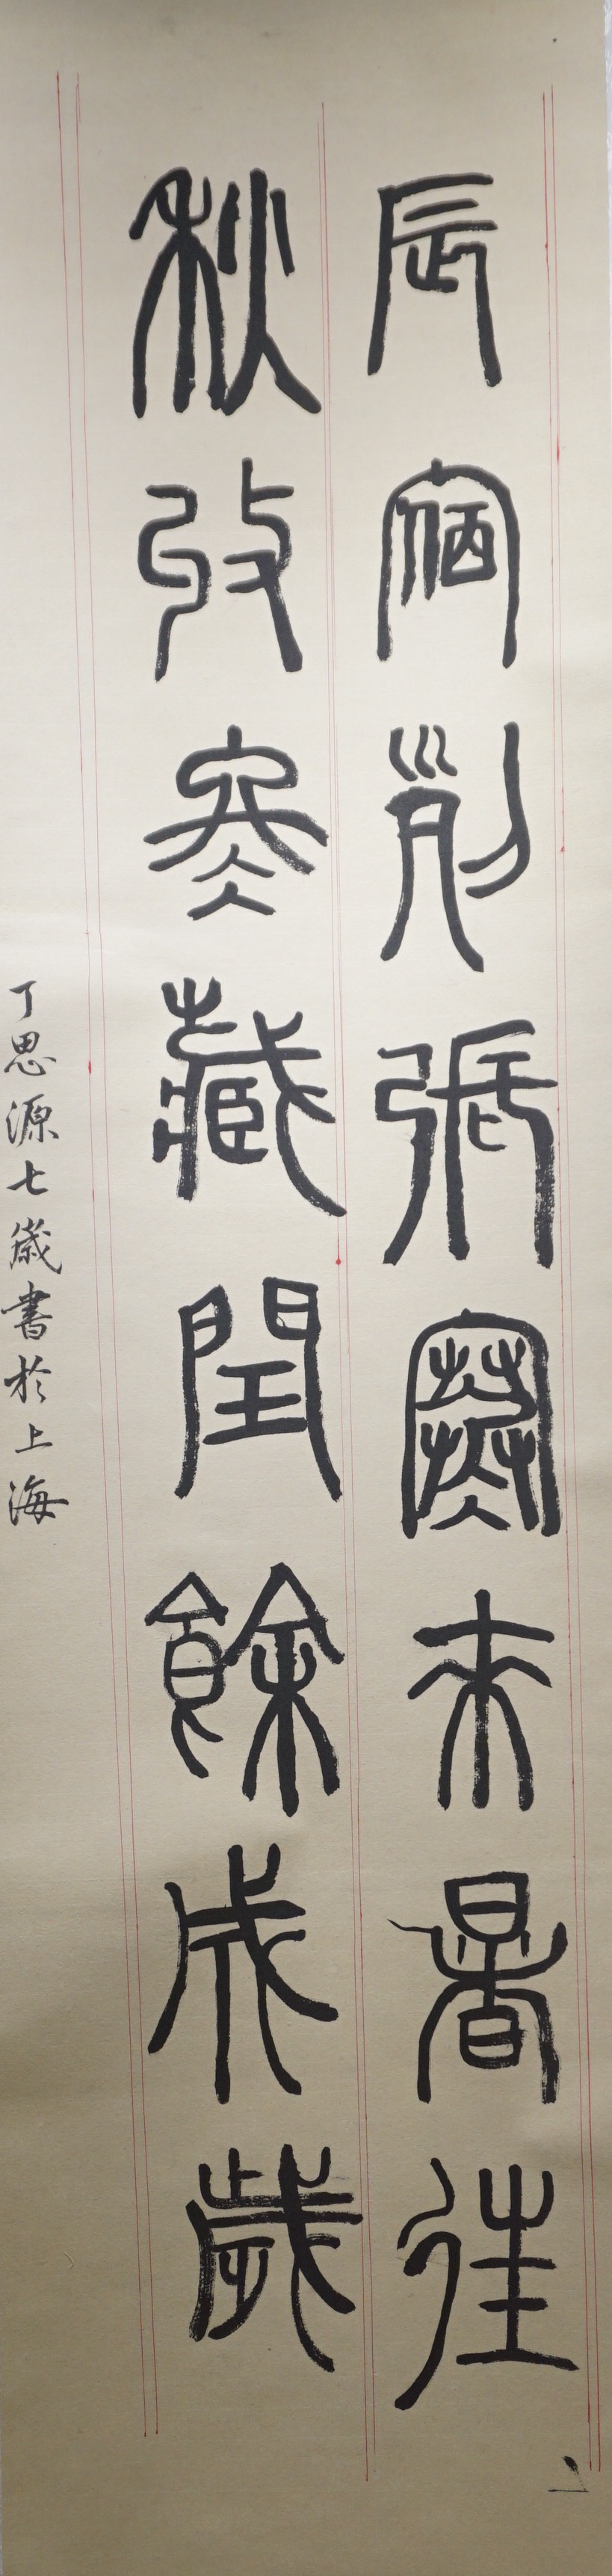 辰宿列張寒来暑往
秋收冬藏閏餘成歲
丁思源七歲書於上海